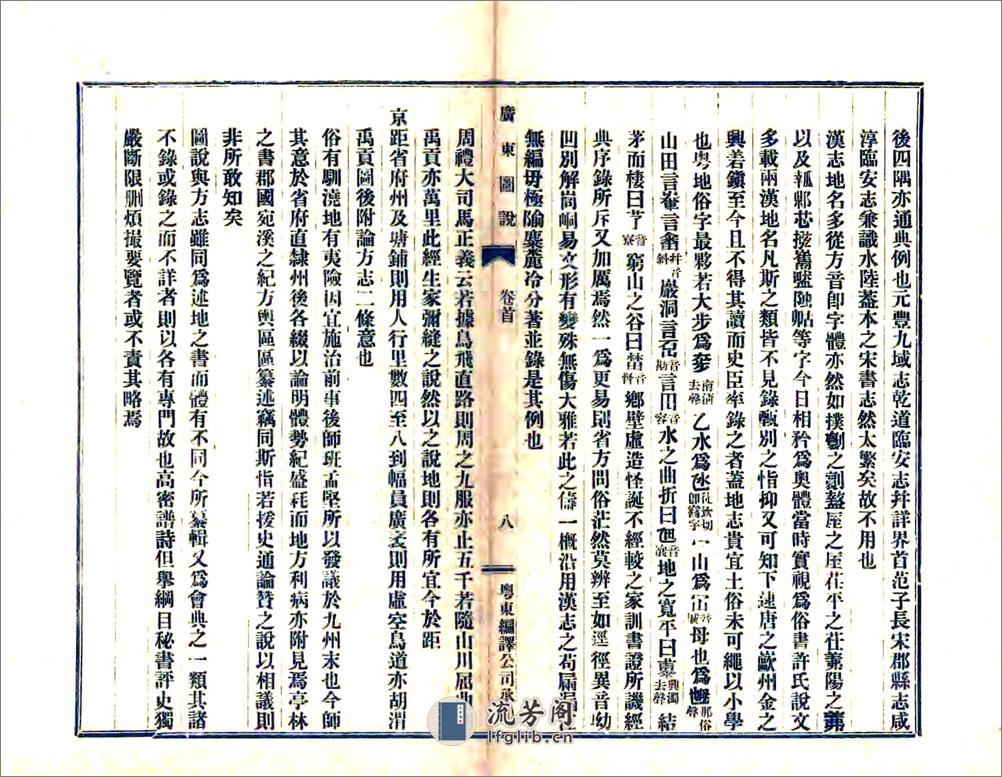 後四隅亦通典例也元豐九域志乾道臨安志幷詳界首范子長宋郡縣志咸
淳臨安志兼識水陸蓋本之宋書志然太繁矣故不用也
漢志地名多從方音卽字體亦然如撲劇之劇盩厔之厔茌平之茌
以及等字今日相矜為奧體當時實視為俗書許氏說文
多載兩漢地名凡斯之類皆不見錄甄別之恉抑又可知下逮唐之歐州金之
興若鎭至今且不得其讀而史臣率錄之者蓋地志貴宜土俗未可繩以小學
也粤地俗字最夥若大步為乙水為一山為母也為
山田言言巖洞言言水之曲折曰地之寬平曰結
茅而棲曰窮山之谷曰鄉壁虛造怪誕不經較之家訓書證所譏經
典序錄所斥又加厲焉然一為更易則省方問俗茫然莫辨至如逕徑異音坳
凹別解崗峒易文形有變殊無傷大雅若此之儔一槪沿用漢志之
無編毋極隃麋麓泠分著並錄是其例也
廣東圖說
卷首
八
粤東編譯公司承
周禮大司馬正義云若據鳥飛直路則周之九服亦止五千若隨山川屈曲
禹貢亦萬里此經生家彌縫之說然以之說地則各有所宜今於距
京距省府州及塘鋪則用人行里數四至八到幅員廣袤則用虛空鳥道亦胡渭
禹貢圖後附論方志二條意也
俗有馴澆地有夷險因宜施治前事後師班孟堅所以發議於九州末也今師
其意於省府直隸州後各綴以論明體勢紀盛耗而地方利病亦附見焉亭林
之書郡國宛溪之紀方輿區區纂述竊同斯恉若援史通論贊之說以相議則
非所敢知矣
圖說與方志雖同為述地之書而體有不同今所纂輯又為會典之一類其諸
不錄或錄之而不詳者則以各有專門故也高密譜詩但舉綱目祕書評史獨
嚴斷限刪煩撮要覽者或不責其略焉
流芳阁
lfglib.cn